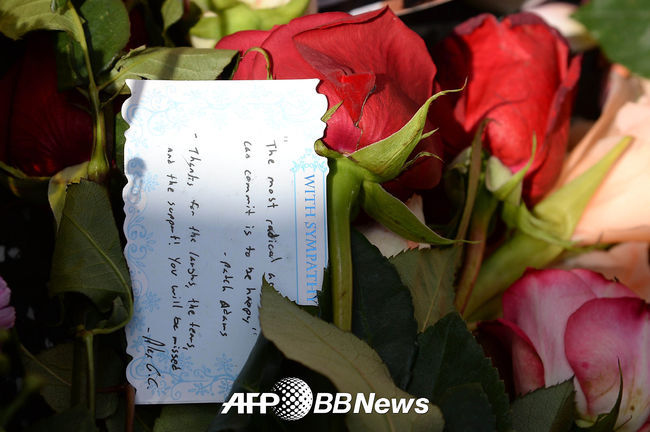 WITH SYMPATHY
"The most radical a
can commit is to be happy"
- Patch Adams
- Thanks for the laughs, the tears,
and the support! You will be missed
- Alex C.C.
AFP BBNews